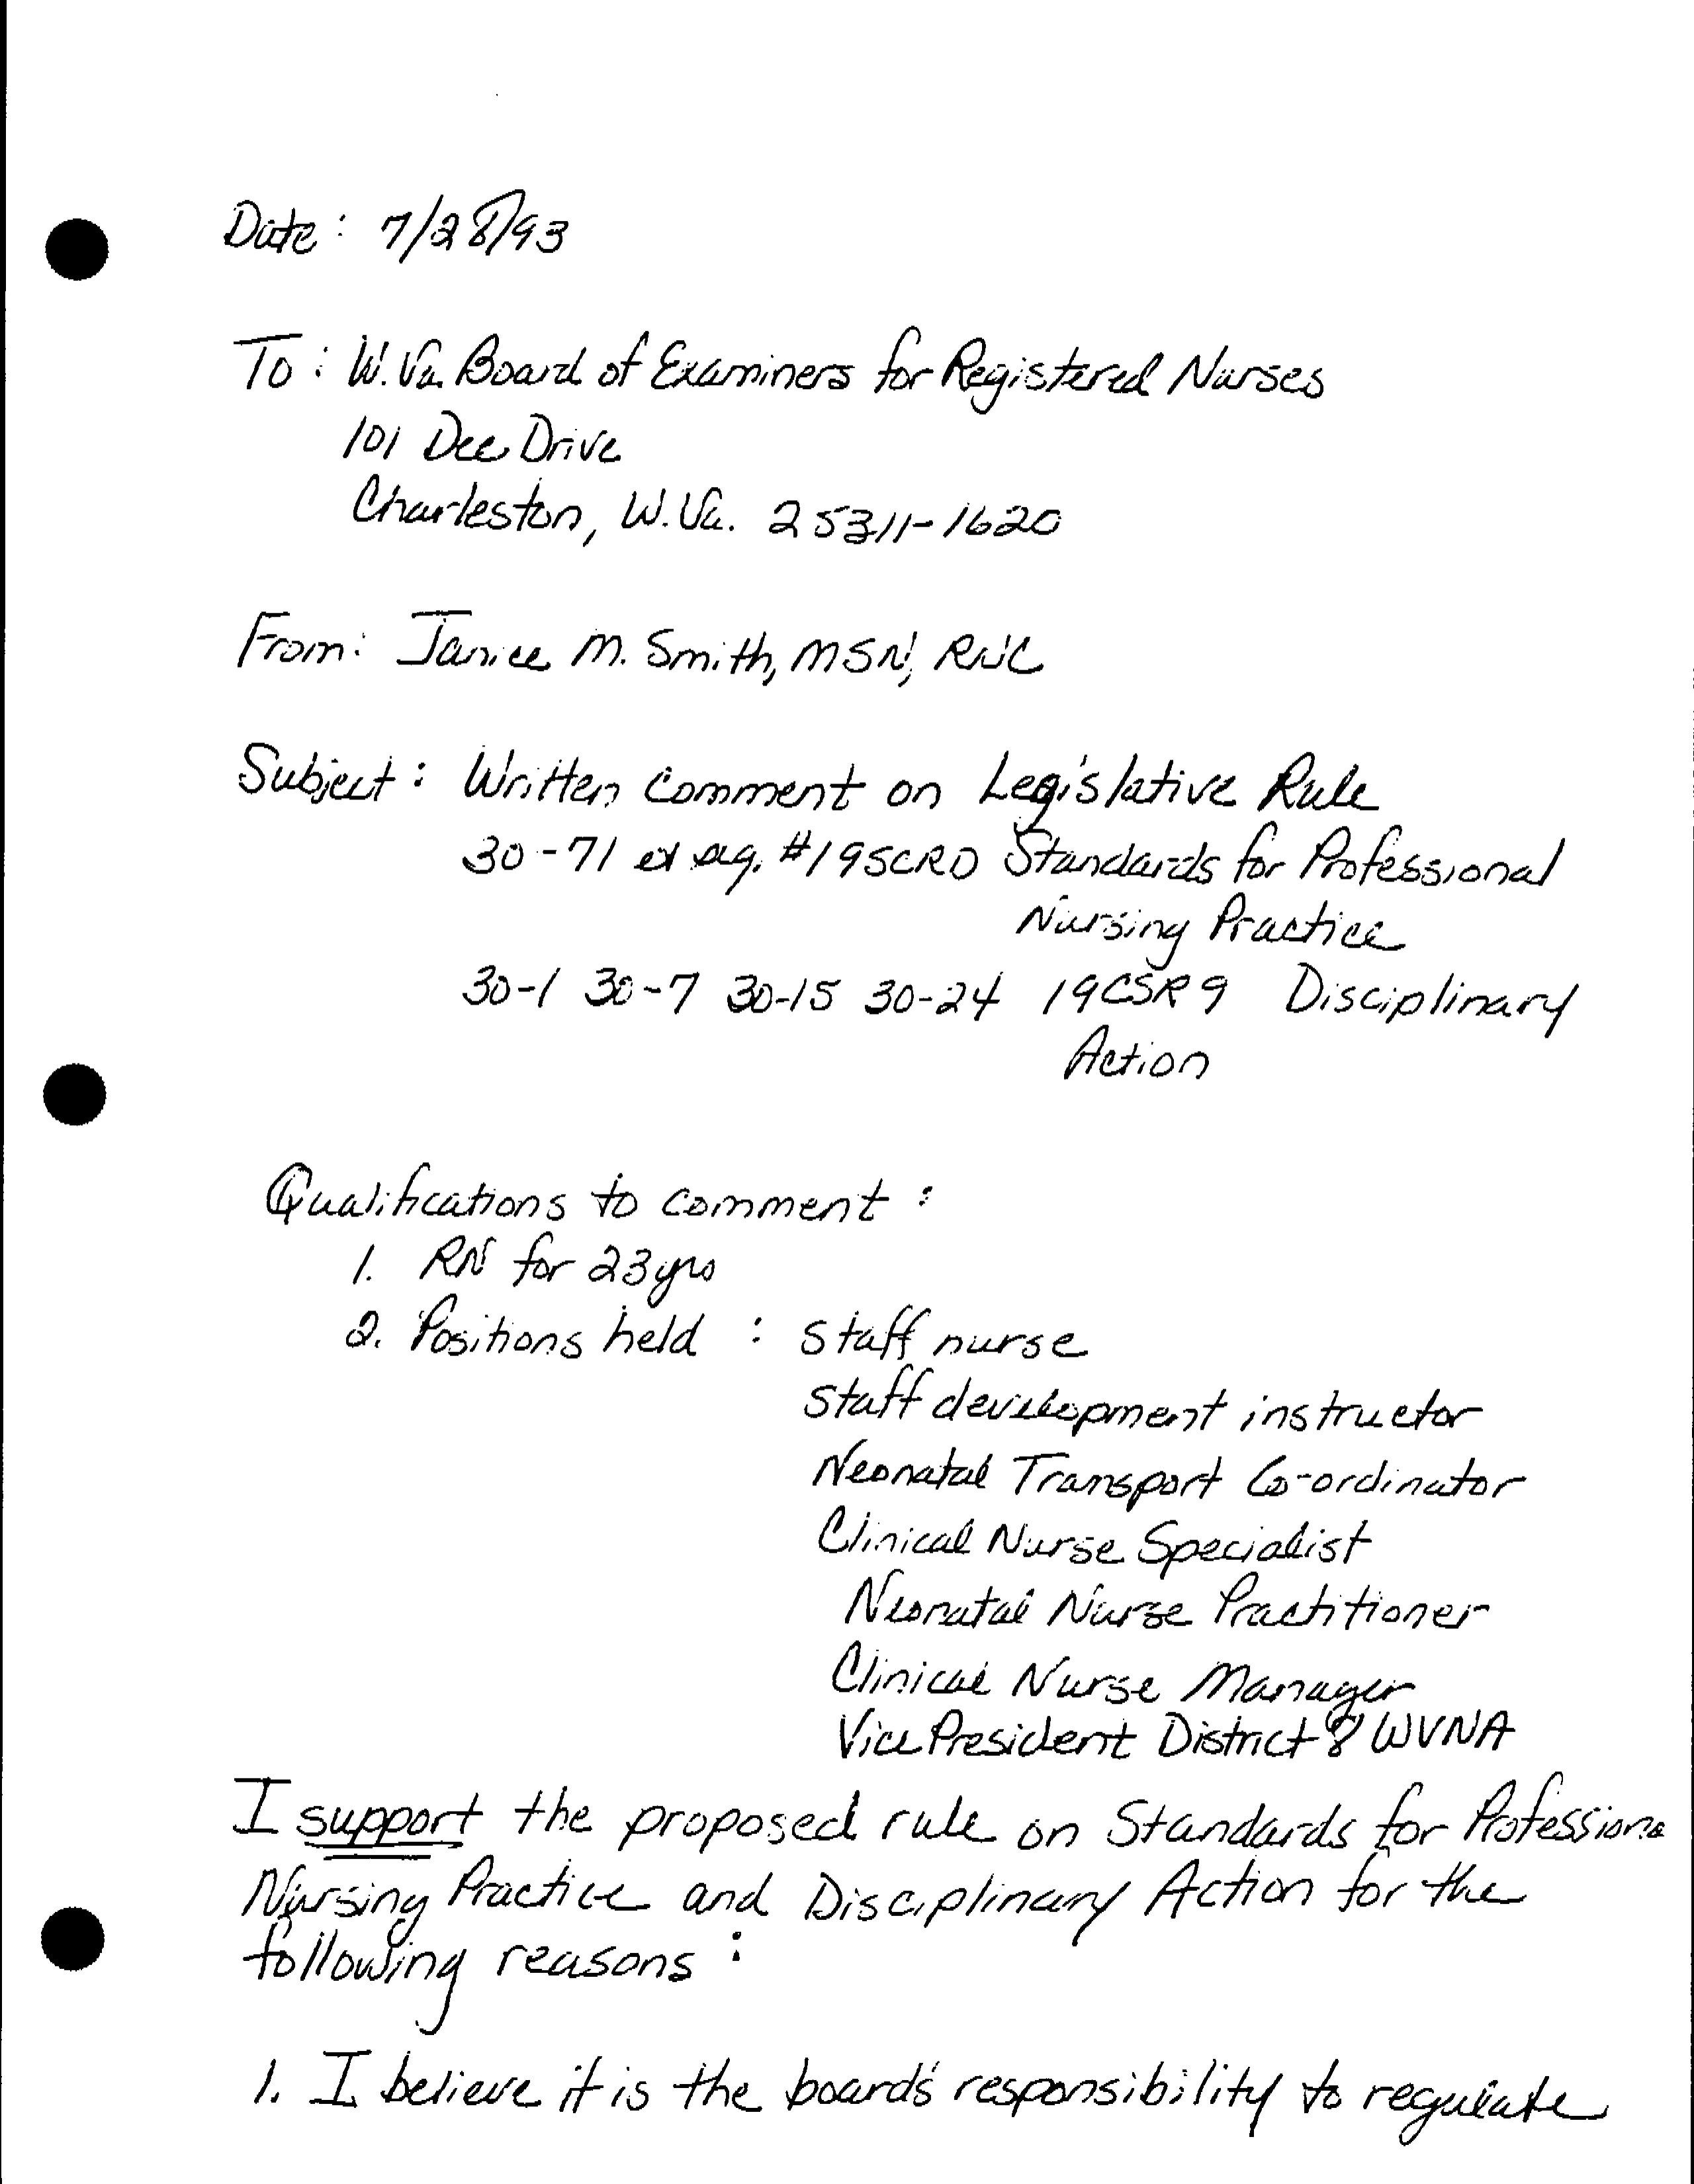 Date: 7/28/93
To: W.Va. Board of Examiners for Registered Nurses
101 Dee Drive
Charleston, W.Va. 25311-1620
From: Janice M. Smith, MSN, RNC
Subject: Written Comment on Legislative Rule
30-71 et seq. #19SCRO Standards for Professional
Nursing Practice
30-1 30-7 30-15 30-24 19CSR9 Disciplinary
Action
Qualifications to comment:
1. RN for 23yrs
2. Positions held : Staff nurse
Staff development instructor
Neonatal Transport Co-ordinator
Clinical Nurse Specialist
Neonatal Nurse Practitioner
Clinical Nurse Manager
Vice President District 8 WVNA
I support the proposed rule on Standards for Professiona
Nursing Practice and Disciplinary Action for the
following reasons:
1. I believe it is the board's responsibility to regulate